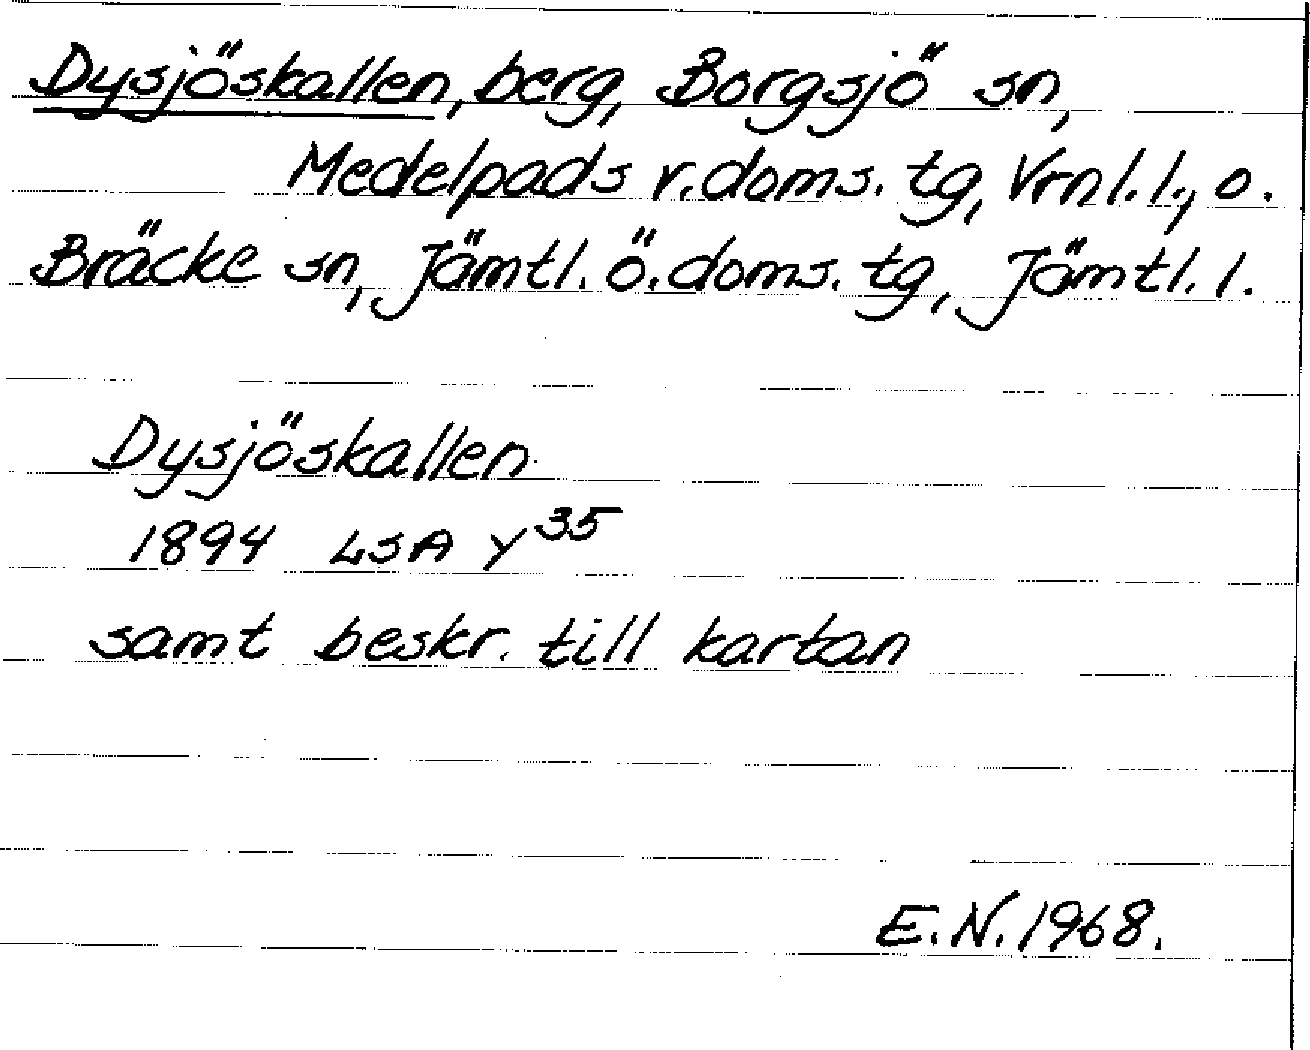 Dysjöskallen, berg, Borgsjö sn,
Medelpads v.doms. tg, Vrnl. l., o.
Bräcke sn, Jämtl. ö.doms. tg, Jämtl. l.
Dysjöskallen
1894 LSA Y 35
samt beskr. till kartan
E.N. 1968.